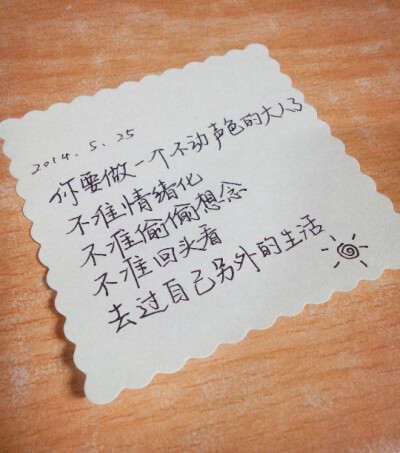 2014.5.25
你要做一个不动声色的大人了
不准情绪化
不准偷偷想念
不准回头看
去过自己另外的生活